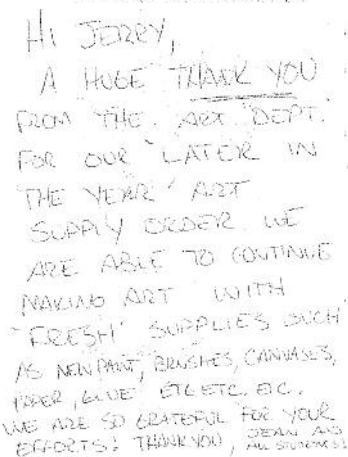 Hi JERRY,
A HUGE THANK YOU
FROM THE ART DEPT.
FOR OUR "LATER IN
THE YEAR" ART
SUPPLY ORDER. WE
ARE ABLE TO CONTINUE
MAKING ART WITH
"FRESH" SUPPLIES SUCH
AS NEW PAINT, BRUSHES, CANVASES,
PAPER, GLUE ETC ETC. ETC.
WE ARE SO GRATEFUL FOR YOUR
EFFORTS! THANK YOU, JEAN AND
ALL STUDENTS!